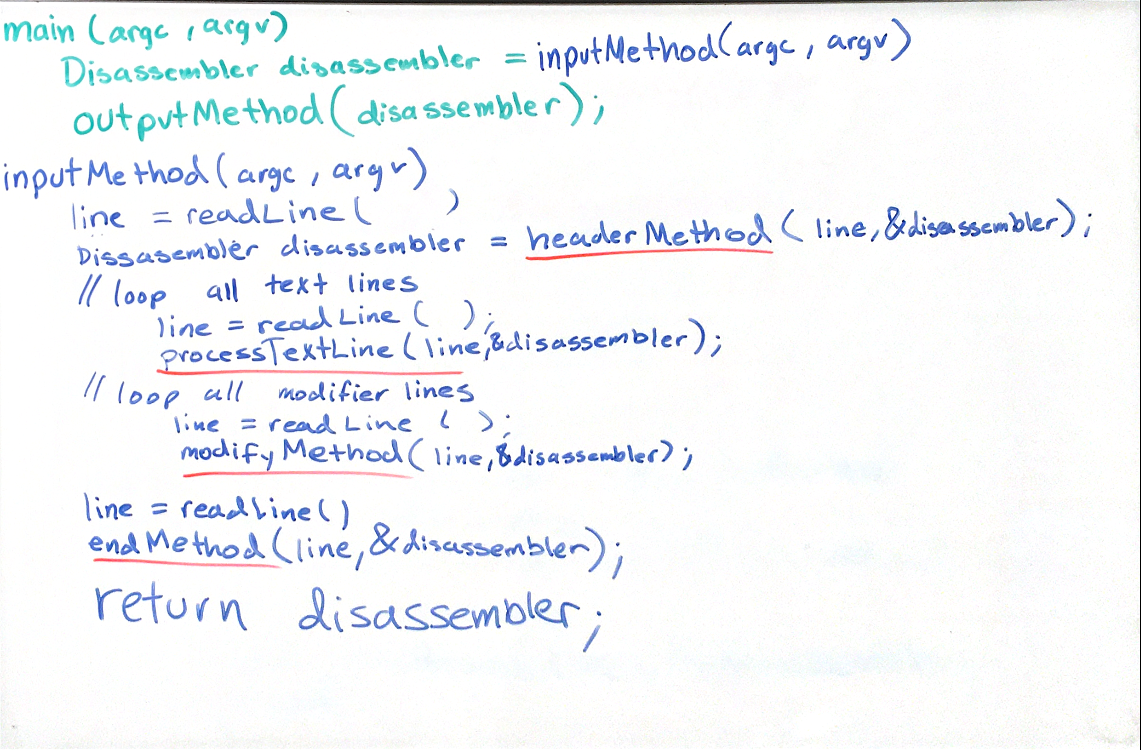 main (argc, argv)
Disassembler disassembler = inputMethod(argc, argv)
outputMethod(disassembler);
inputMethod(argc, argv)
line = readLine( )
Dissasembler disassembler = headerMethod( line, &disassembler);
// loop all text lines
line = readLine ( );
processTextLine(line, &disassembler);
// loop all modifier lines
line = readLine ( );
modifyMethod( line, &disassembler);
line = readLine()
endMethod(line, &disassembler);
return disassembler;